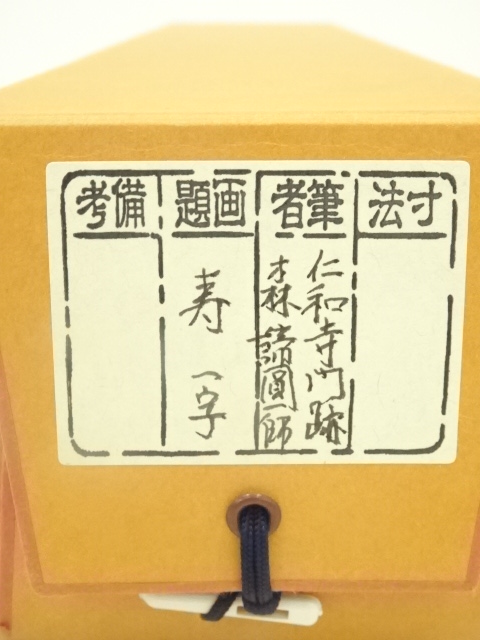 寸法
筆者
仁和寺門跡
森諦圓師
画題
寿 一字
備考